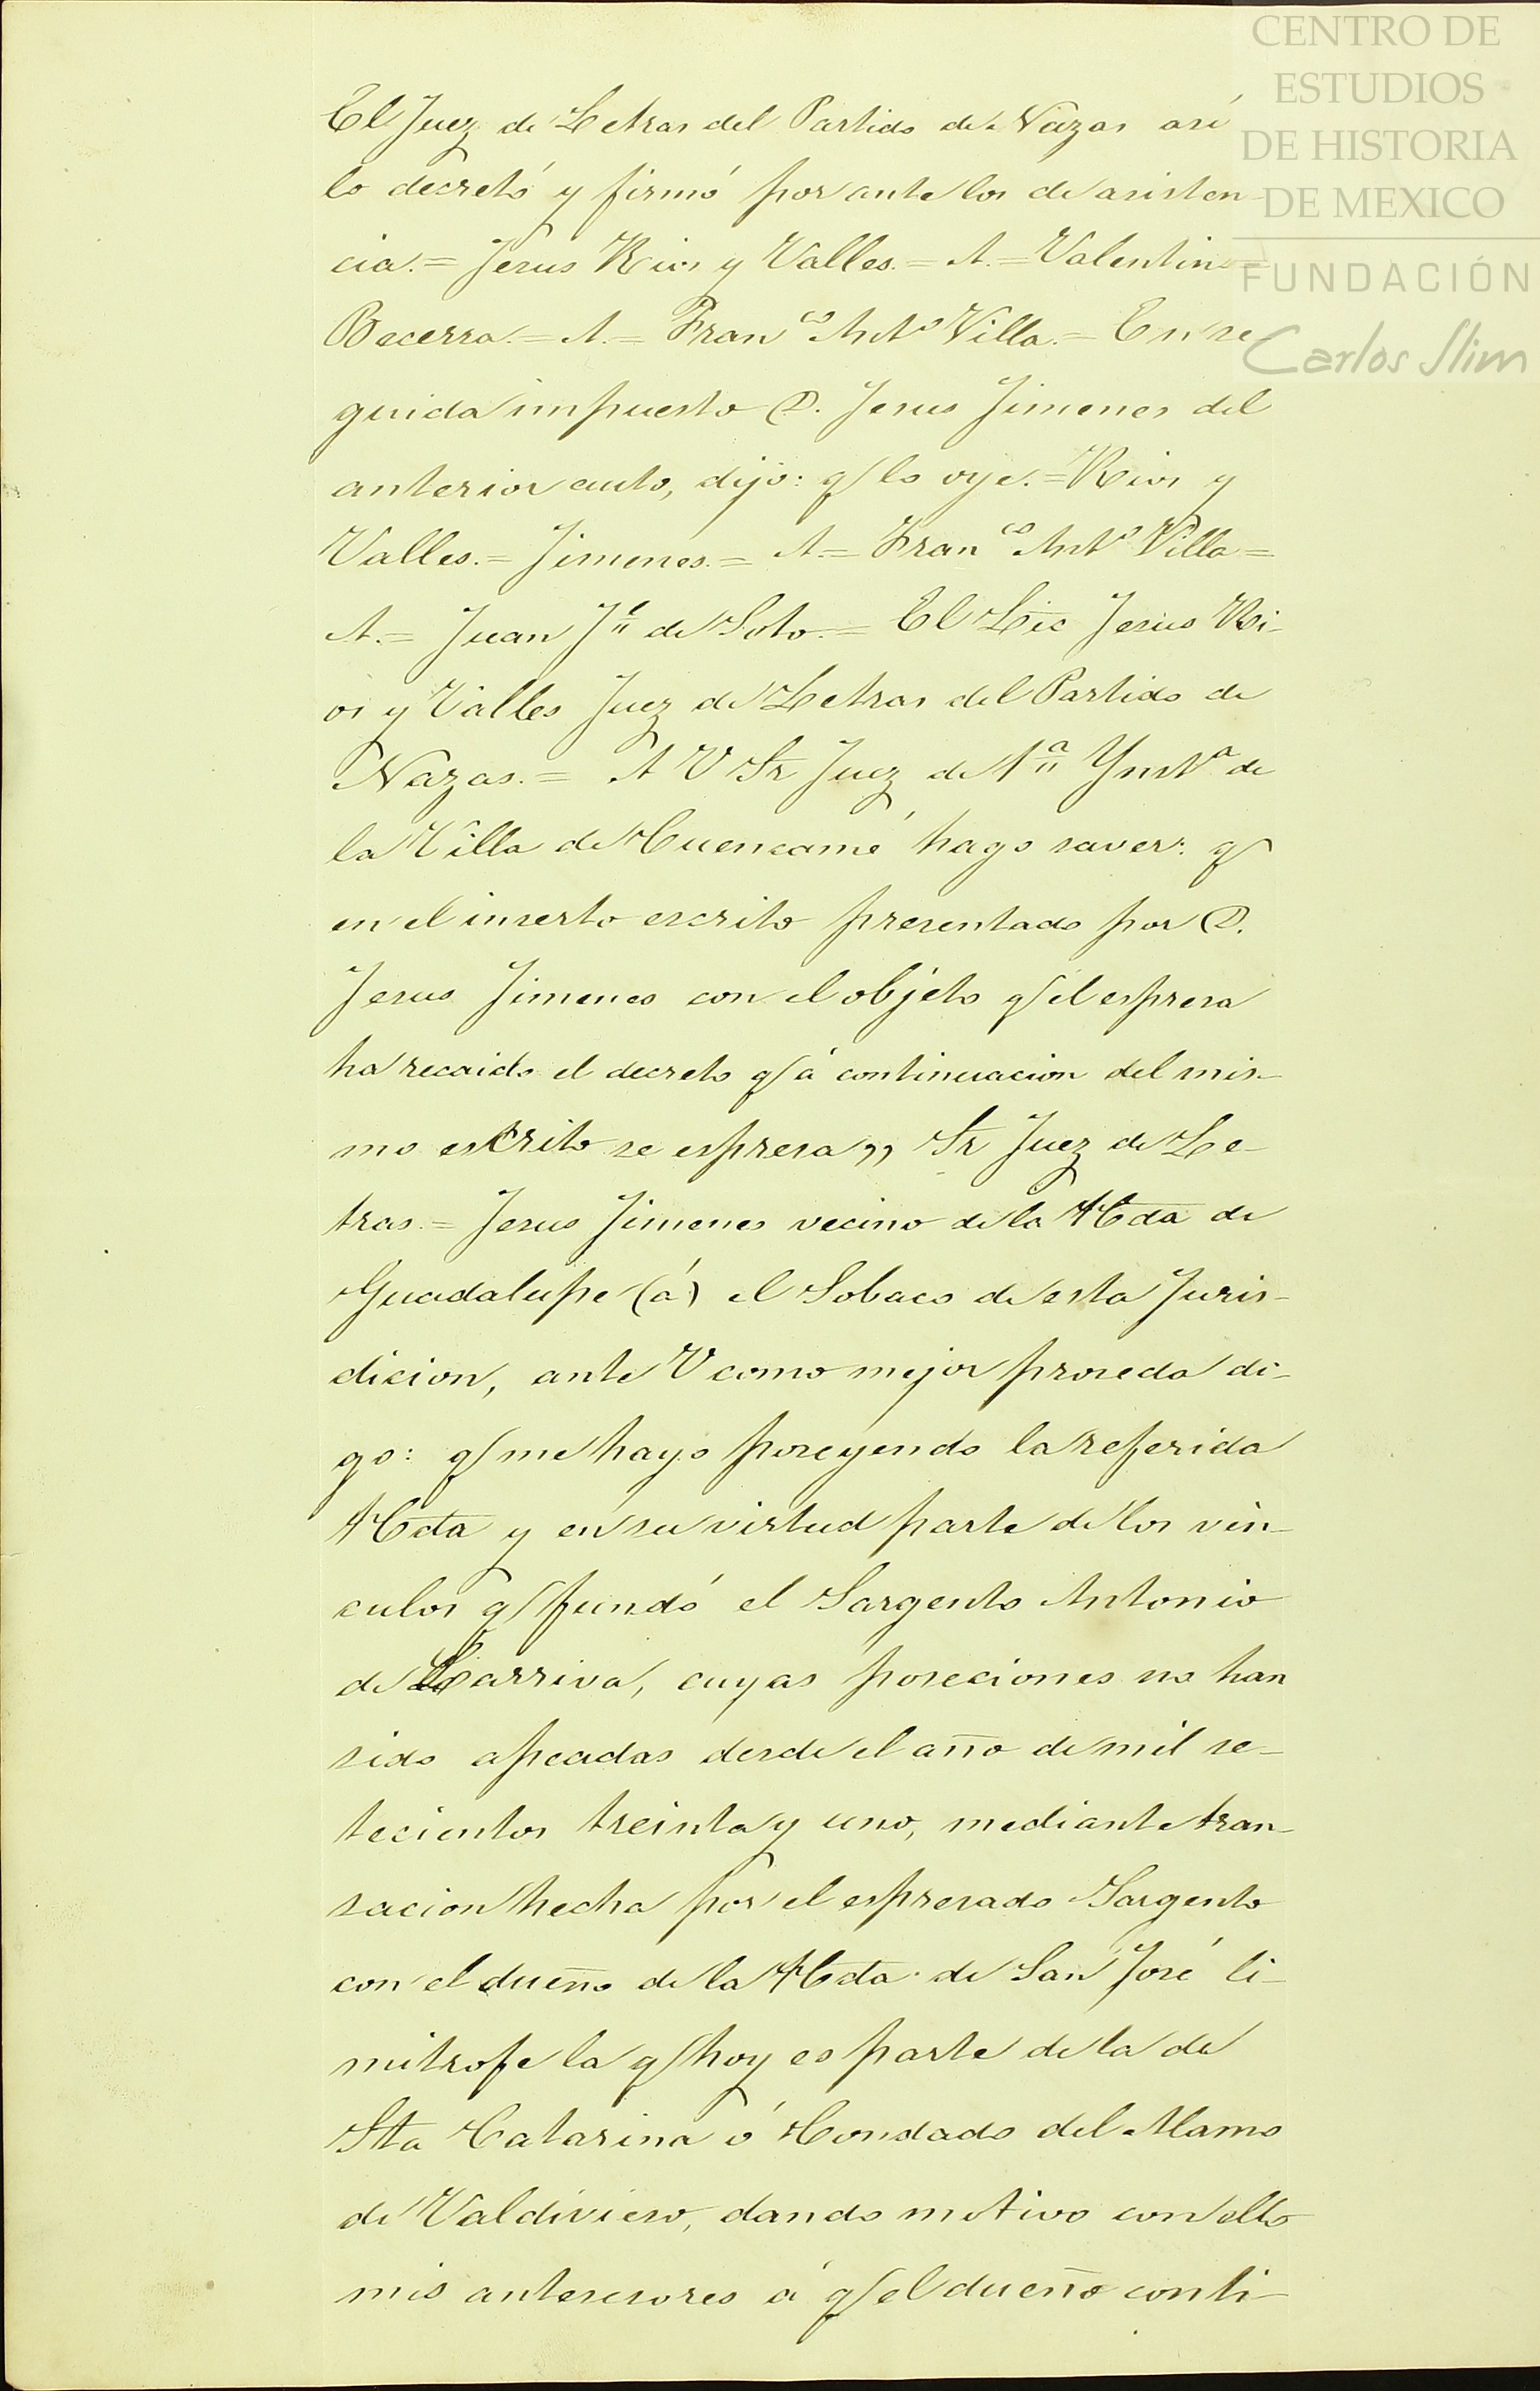 CENTRO DE
ESTUDIOS
DE HISTORIA
DE MEXICO
FUNDACIÓN
Carlos Slim
El Juez de Letras del Partido de Nazas así
lo decretó y firmó por ante los de asisten-
cia.= Jesus Rios y Valles.= A.= Valentin
Becerra.= A.= Fran.co Ant.o Villa.= En se
guida impuesto D. Jesus Jimenes del
anterior auto, dijo: q/ lo oye.= Rios y
Valles.= Jimenes.= A.= Fran.co Ant.o Villa=
A.= Juan J.é de Soto.= El Lic Jesus Ri-
os y Valles Juez de Letras del Partido de
Nazas.= A V Sr Juez de 1.a Ynst.a de
la Villa de Cuencamé hago saver: q/
en el inserto escrito presentado por D.
Jesus Jimenes con el objeto q/ el espresa
ha recaido el decreto q/ á continuacion del mis-
mo escrito se espresa,, Sr Juez de Le-
tras.= Jesus Jimenes vecino de la Hda de
Guadalupe (á) el Sobaco de esta Juris-
dicion, ante V como mejor proseda di-
go: q/ me hayo poseyendo la referida
Hda y en su virtud parte de los vin-
culos q/ fundó el Sargento Antonio
de Larriva, cuyas poseciones no han
sido apeadas desde el año de mil se-
tecientos treinta y uno, mediante tran-
sacion hecha por el espresado Sargento
con el dueño de la Hda. de San José li-
mitrofe la q/ hoy es parte de la de
Sta Catarina ó Condado del Alamo
de Valdivieso, dando motivo con ello
mis antesesores á q/ el dueño conti-